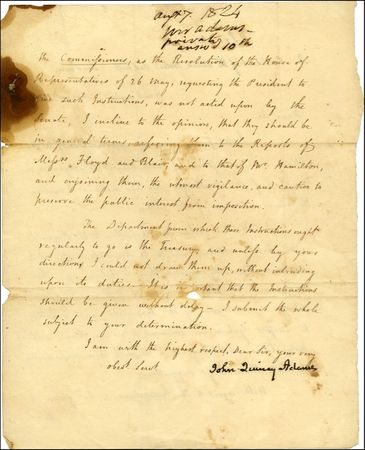 augt 7. 1824
Mr Adams—
private
answd 10th
the Commissioners, as the Resolution of the House of
Representatives of 26 May, requesting the President to
such Instructions, was not acted upon by the
Senate, I incline to the opinion, that they should be
in general terms, referring them to the Reports of
Messrs. Floyd and Blair, and to that of Mr. Hamilton,
and enjoining them, the utmost vigilance, and caution to
preserve the public interest from imposition.
The Department from which these Instructions ought
regularly to go is the Treasury, and unless by your
direction, I could not draw them up, without intruding
upon its duties. It is important that the Instructions
should be given without delay — I submit the whole
subject to your determination.
I am with the highest respect, Dear Sir, your very
obedt. Servt.
John Quincy Adams